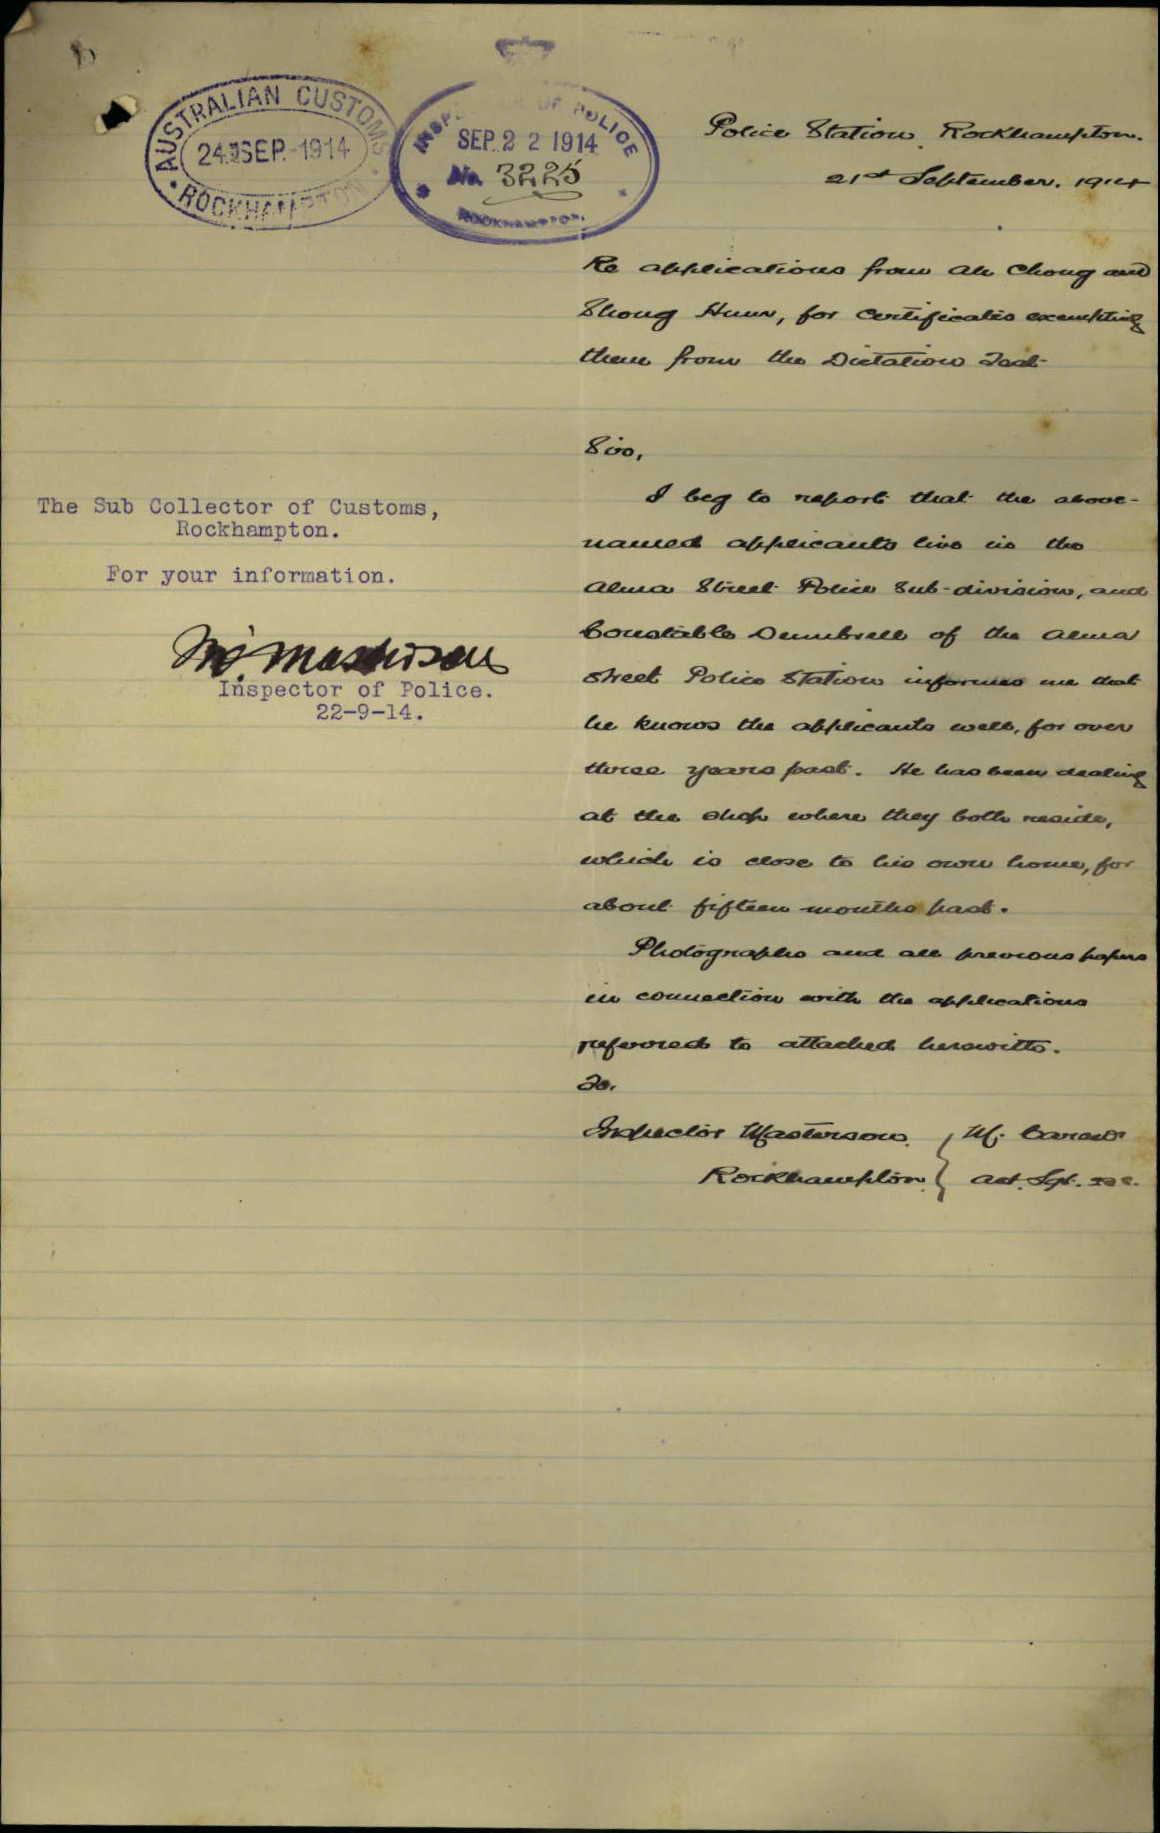 AUSTRALIAN CUSTOMS
24 SEP. 1914
ROCKHAMPTON
INSPECTOR OF POLICE
SEP. 22 1914
No. 3225
ROCKHAMPTON.
Police Station, Rockhampton.
21st September. 1914
Re applications from Ah Chong and
Shong Hunn, for certificates exempting
them from the Dictation Test
Sir,
I beg to report that the above-
named applicants live in the
Alma Street Police Sub-division, and
Constable Dumbrell of the Alma
Street Police Station informes me that
he knows the applicants well, for over
three years past. He has been dealing
at the shop where they both reside,
which is close to his own home, for
about fifteen months past.
Photographs and all previous papers
in connection with the applications
referred to attached herewith.
To.
Inspector Masterson.
Rockhampton.
M.
Act. Sgt.
The Sub Collector of Customs,
Rockhampton.
For your information.
Masterson
Inspector of Police.
22-9-14.